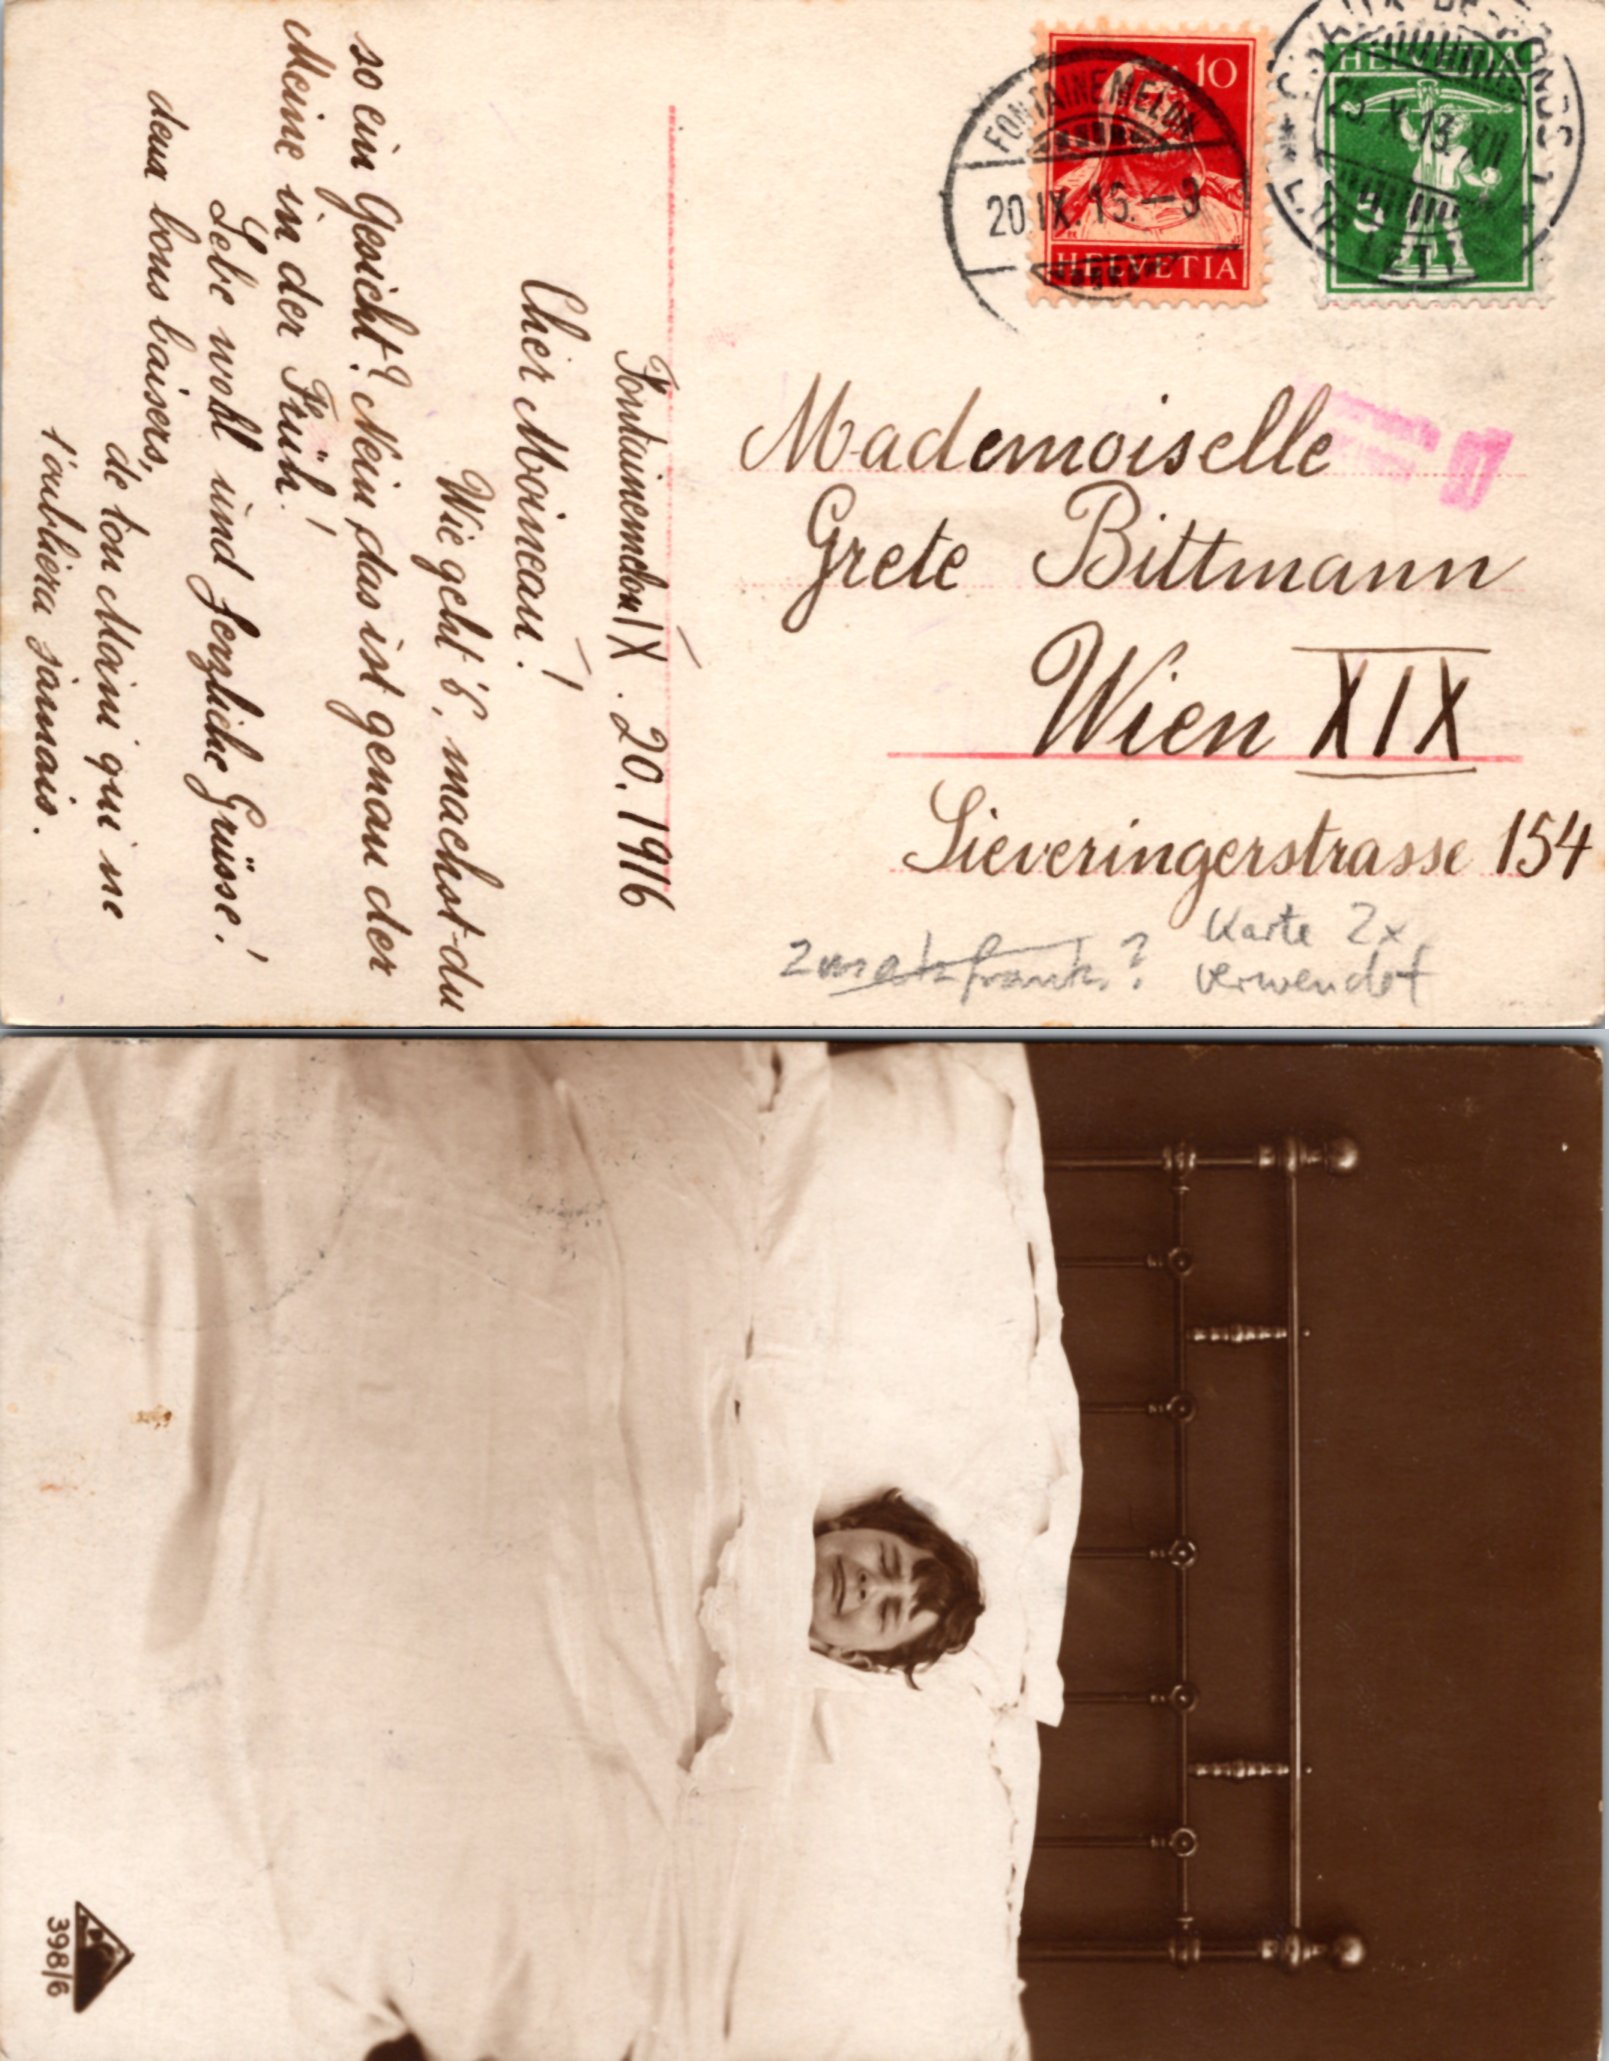 Fontainemelon IX. 20. 1916
Cher Moineau!
Wie geht's', machst-du
so ein Gesicht? Nein, das ist genau der
Meine in der Früh!
Lebe wohl und herzliche Grüsse!
deux bons baisers,
de ton Maini qui ne
t'oubliera jamais.
10
HELVETIA
FONTAINEMELON
20.IX.16.–3
HELVETIA
5
25.X.13.XII
Mademoiselle
Grete Bittmann
Wien XIX
Sieveringerstrasse 154
Zusatzfrank.?
Karte 2x
verwendet
398/6